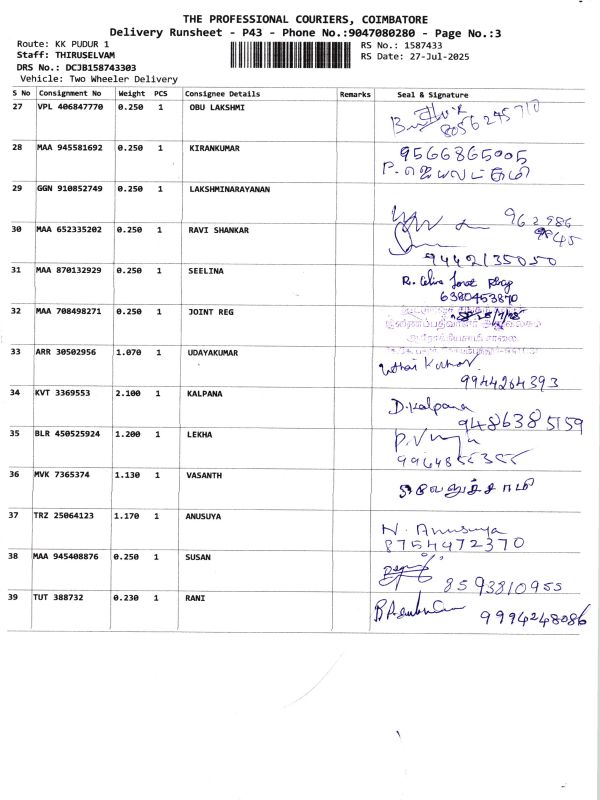 THE PROFESSIONAL COURIERS, COIMBATORE
Delivery Runsheet - P43 - Phone No.:9047080280 - Page No.:3
Route: KK PUDUR 1 RS No.: 1587433
Staff: THIRUSELVAM RS Date: 27-Jul-2025
DRS No.: DCJB158743303
Vehicle: Two Wheeler Delivery
S No Consignment No Weight PCS Consignee Details Remarks Seal & Signature
27 VPL 406847770 0.250 1 OBU LAKSHMI
8056245710
28 MAA 945581692 0.250 1 KIRANKUMAR 9566865005
P. ஜெயலட்சுமி
29 GGN 910852749 0.250 1 LAKSHMINARAYANAN
962986
9945
30 MAA 652335202 0.250 1 RAVI SHANKAR
9442135050
31 MAA 870132929 0.250 1 SEELINA
6380453870
32 MAA 708498271 0.250 1 JOINT REG
33 ARR 30502956 1.070 1 UDAYAKUMAR
9944264393
34 KVT 3369553 2.100 1 KALPANA D.Kalpana
9486385159
35 BLR 450525924 1.200 1 LEKHA
9964855355
36 MVK 7365374 1.130 1 VASANTH
37 TRZ 25064123 1.170 1 ANUSUYA N. Anusuya
8754472370
38 MAA 945408876 0.250 1 SUSAN
8593810955
39 TUT 388732 0.230 1 RANI
9994248086